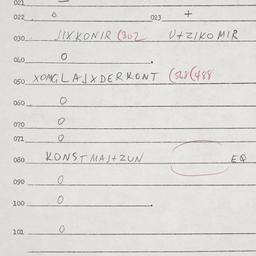 021
022 0 023 +
030 JIXKONIR (302 U+ZIKOMIR
040 0
050 XOMGLAJXDERKONT (528(488
060 0
070 0
071 0
080 KONSTMAJ+ZUN EQ
090 0
100 0
101 0